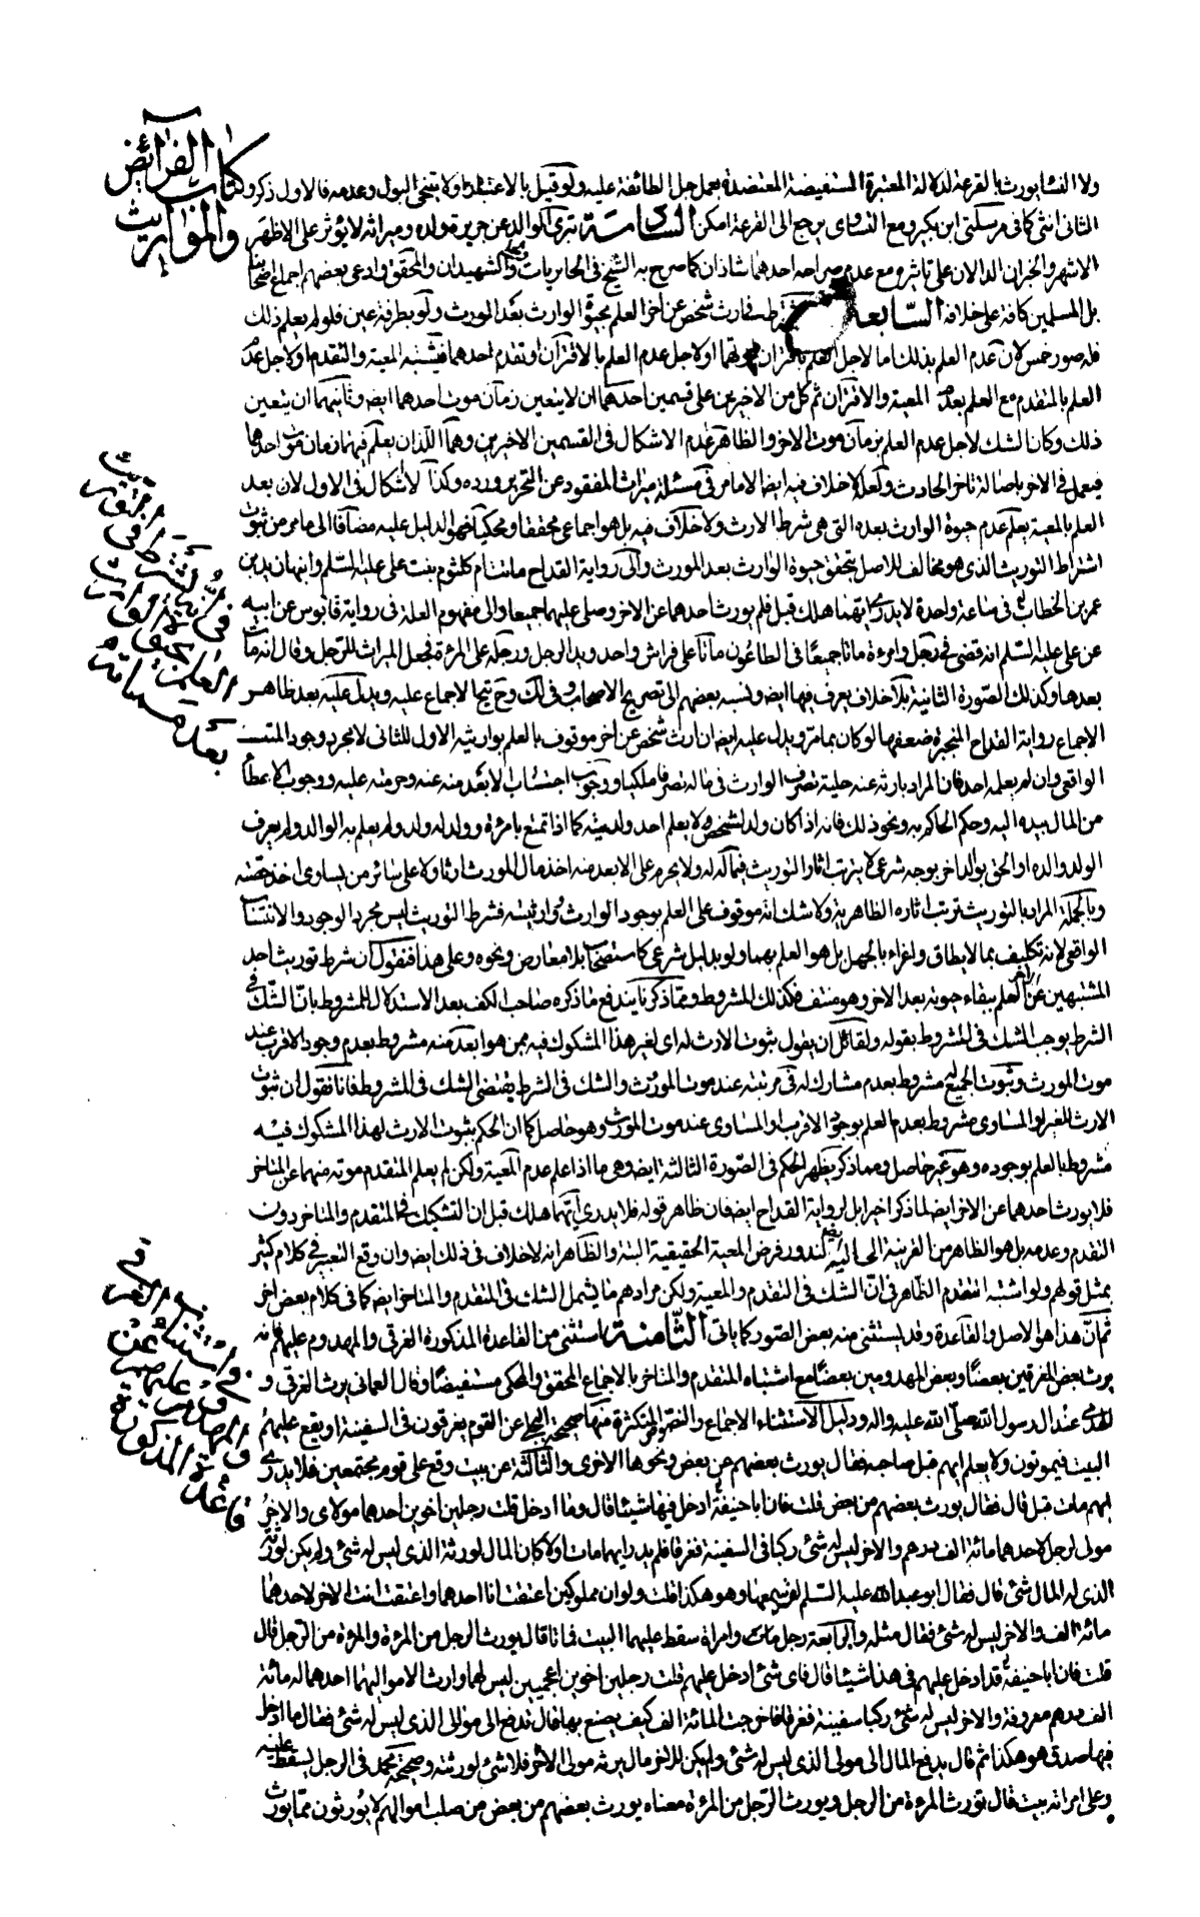 كتاب الفرائض
والمواريث
ولا الفنثا يورث بالقرعة لدلالة المعتبرة المستفيضة المعتضدة بعمل جل الطائفة عليه ولو قيل بالاعتبار ولا بتنحى البول وعدمه فالاول ذكر و
الثانى انثى كما فى مرسلتى ابن بكير ومع التساوى يرجع الى القرعة امكن السادسة تبرى الوالد عن جريرة ولده وميراثه لا يؤثر على الاظهر
الاشهر والخبران الدالان على تاثيره مع عدم صراحة احدهما شاذان كما صرح به الشيخ فى الحايريات والشهيدان والمحقق وادعى بعضهم اجماع اصحابنا
بل المسلمين كافة على خلافه السابعة يشترط فى ارث شخص عن اخر العلم بحيوة الوارث بعد المورث ولو بطرفة عين فلو لم يعلم ذلك
فله صور خمس لان عدم العلم بذلك اما لاجل العلم باقتران موتهما او لاجل عدم العلم بالاقتران او تقدم احدهما فيشتبه المعية والتقدم او لاجل عدم
العلم بالمتقدم مع العلم بعدم المعية والاقتران ثم كل من الاخيرين على قسمين احدهما ان لا يتعين زمان موت احدهما ايضا وثانيهما ان يتعين
ذلك وكان الشك لاجل عدم العلم بزمان موت الاخر والظاهر عدم الاشكال فى القسمين الاخيرين وهما اللذان يعلم فيهما زمان موت احدهما
فيعمل فى الاخر باصالة تاخر الحادث ولعله لا خلاف فيه ايضا الا ما مر فى مسئلة ميراث المفقود عن التحرير ورده وكذا لا اشكال فى الاول لان بعد
العلم بالمعية يعلم عدم حيوة الوارث بعده التى هى شرط الارث ولا خلاف فيه بل هو اجماعى محققا ومحكيا فهو الدليل عليه مضافا الى ما مر من ثبوت
اشتراط التوريث الذى هو مخالف للاصل بتحقق حيوة الوارث بعد المورث والى رواية القداح ماتت ام كلثوم بنت على عليه السلم وابنها زيد بن
عمر بن الخطاب فى ساعة واحدة لا يدرى ايهما هلك قبل فلم يورث احدهما عن الاخر وصلى عليهما جميعا والى مفهوم العلة فى رواية قابوس عن ابيه
عن على عليه السلم انه قضى فى رجل وامرءة ماتا جميعا فى الطاعون ماتا على فراش واحد ويد الرجل ورجله على المرءة فجعل الميراث للرجل وقال انه مات
بعدها وكذلك الصورة الثانية بلا خلاف يعرف فيها ايضا ونسبه بعضهم الى تصريح الاصحاب وفى لك وح تيجا الاجماع عليه ويدل عليه بعد ظاهر
الاجماع رواية القداح المنجبرة ضعفها لو كان بما مر ويدل عليه ايضا ان ارث شخص عن اخر موقوف بالعلم بوارثيه الاول للثانى لا مجرد وجود المنتسب
الواقعى وان لم يعلمه احد فان المراد بارثه عنه حلية تصرف الوارث فى ماله تصرفا ملكيا ووجوب اجتناب الابعد منه عنه وحرمته عليه ووجوب الاعطاء
من المال بيده اليه وحكم الحاكم به ونحو ذلك فانه اذا كان ولد لشخص ولا يعلم احد ولديته كما اذا تمتع بامرءة وولد له ولد ولم يعلم به الوالد ولم يعرف
الولد والده او الحق بوالد اخر بوجه شرعى لا يترتب اثار التوريث فيما له ولا يحرم على الابعد منه اخذ مال المورث ارثا ولا على سائر من يساوى اخذ حصته
وبالجملة المراد بالتوريث ترتب اثاره الظاهرية ولا شك انه موقوف على العلم بوجود الوارث ووارثيته فشرط التوريث ليس مجرد الوجود والانتساب
الواقعى لانه تكليف بما لا يطاق واغراء بالجهل بل هو العلم بهما ولو بدليل شرعى كاستصحاب بلا معارض ونحوه وعلى هذا فنقول ان شرط توريث احد
المشتبهين عن الاخر العلم ببقاء حيوته بعد الاخر وهو منتف فكذلك المشروط ومما ذكرنا يندفع ما ذكره صاحب الكف بعد الاستدلال للمشروط بان الشك فى
الشرط يوجب الشك فى المشروط بقوله ولقائل ان يقول ثبوت الارث له اى لغير هذا المشكوك فيه ممن هو ابعد منه مشروط بعدم وجود الاقرب عند
موت المورث وثبوت الجميع له مشروط بعدم مشارك له فى مرتبته عند موت المورث والشك فى الشرط يقتضى الشك فى المشروط فانا نقول ان ثبوت
الارث للغير او المساوى مشروط بعدم العلم بوجود الاقرب او المساوى عند موت المورث وهو حاصل كما ان الحكم بثبوت الارث لهذا المشكوك فيه
مشروط بالعلم بوجوده وهو غير حاصل ومما ذكر يظهر الحكم فى الصورة الثالثة ايضا وهى ما اذا علم عدم المعية ولكن لم يعلم المتقدم موته منهما عن المتاخر
فلا يورث احدهما عن الاخر ايضا لما ذكر اخيرا بل لرواية القداح ايضا فان ظاهر قوله فلا يدرى ايهما هلك قبل ان التشكيك فى المتقدم والمتاخر دون
التقدم وعدمه بل هو الظاهر من القرينة الى اليه لندور فرض المعية الحقيقية البتة والظاهر انه لا خلاف فى ذلك ايضا وان وقع التعبير فى كلام كثير
بمثل قولهم ولو اشتبه المتقدم الظاهر فى ان الشك فى المتقدم والمعية ولكن مرادهم ما يشمل الشك فى المتقدم والمتاخر ايضا كما فى كلام بعض اخر
ثم ان هذا هو الاصل والقاعدة وقد يستثنى منه بعض الصور كما ياتى الثامنة استثنى من القاعدة المذكورة الغرقى والمهدوم عليهم فانه
يرث بعض المغرقين بعضا وبعض المهدومين بعضا مع اشتباه المتقدم والمتاخر بالاجماع المحقق والمحكى مستفيضا وقال العمانى يرث الغرقى و
الهدمى عند ال رسول الله صلى الله عليه واله ودليل الاستثناء الاجماع والنصوص المتكثرة منها صحيحة البجلى عن القوم يغرقون فى السفينة او يقع عليهم
البيت فيموتون ولا يعلم ايهم قبل صاحبه فقال يورث بعضهم من بعض ونحوها الاخرى والثالثة عن بيت وقع على قوم مجتمعين فلا يدرى
ايهم مات قبل قال فقال يورث بعضهم من بعض قلت فان ابا حنيفة ادخل فيها شيئا قال وما ادخل قلت رجلين اخوين احدهما مولاى والاخر
مولى لرجل لاحدهما مائة الف درهم والاخر ليس له شئ ركبا فى السفينة فغرقا فلم يدر ايهما مات اولا كان المال لورثة الذى ليس له شئ ولم يكن لورثة
الذى له المال شئ قال فقال ابو عبد الله عليه السلم لقد سمعها وهو هكذا قلت ولو ان مملوكين اعتقت انا احدهما واعتقت انت الاخر لاحدهما
مائة الف والاخر ليس له شئ فقال مثله والرابعة رجل مات وامراة سقط عليهما البيت فماتا قال يورث الرجل من المرءة والمرءة من الرجل قال
قلت فان ابا حنيفة قد ادخل عليهم فى هذا شيئا قال فاى شئ ادخل عليهم قلت رجلين اخوين اعجميين ليس لهما وارث الا مواليهما احدهما له مائة
الف درهم معروفة والاخر ليس له شئ ركبا سفينة فغرقا فاخرجت المائة الف كيف يصنع بها قال تدفع الى موالى الذى ليس له شئ فقال ما ادخل
فيها صدق هو هكذا ثم قال يدفع المال الى مولى الذى ليس له شئ ولم يكن للاخر مال يرثه مولى الاخر فلا شئ لورثته وصحيحة محمد فى الرجل يسقط عليه
وعلى امراته بيت قال تورث المرءة من الرجل ويورث الرجل من المرءة معناه يورث بعضهم من بعض من صلب اموالهم لا يورثون مما يورث
فى انه يشترط فى
العلم بحيوة الوارث
بعد
فى استثناء الغرقى
والمهدوم عليهم عن
القاعدة المذكورة